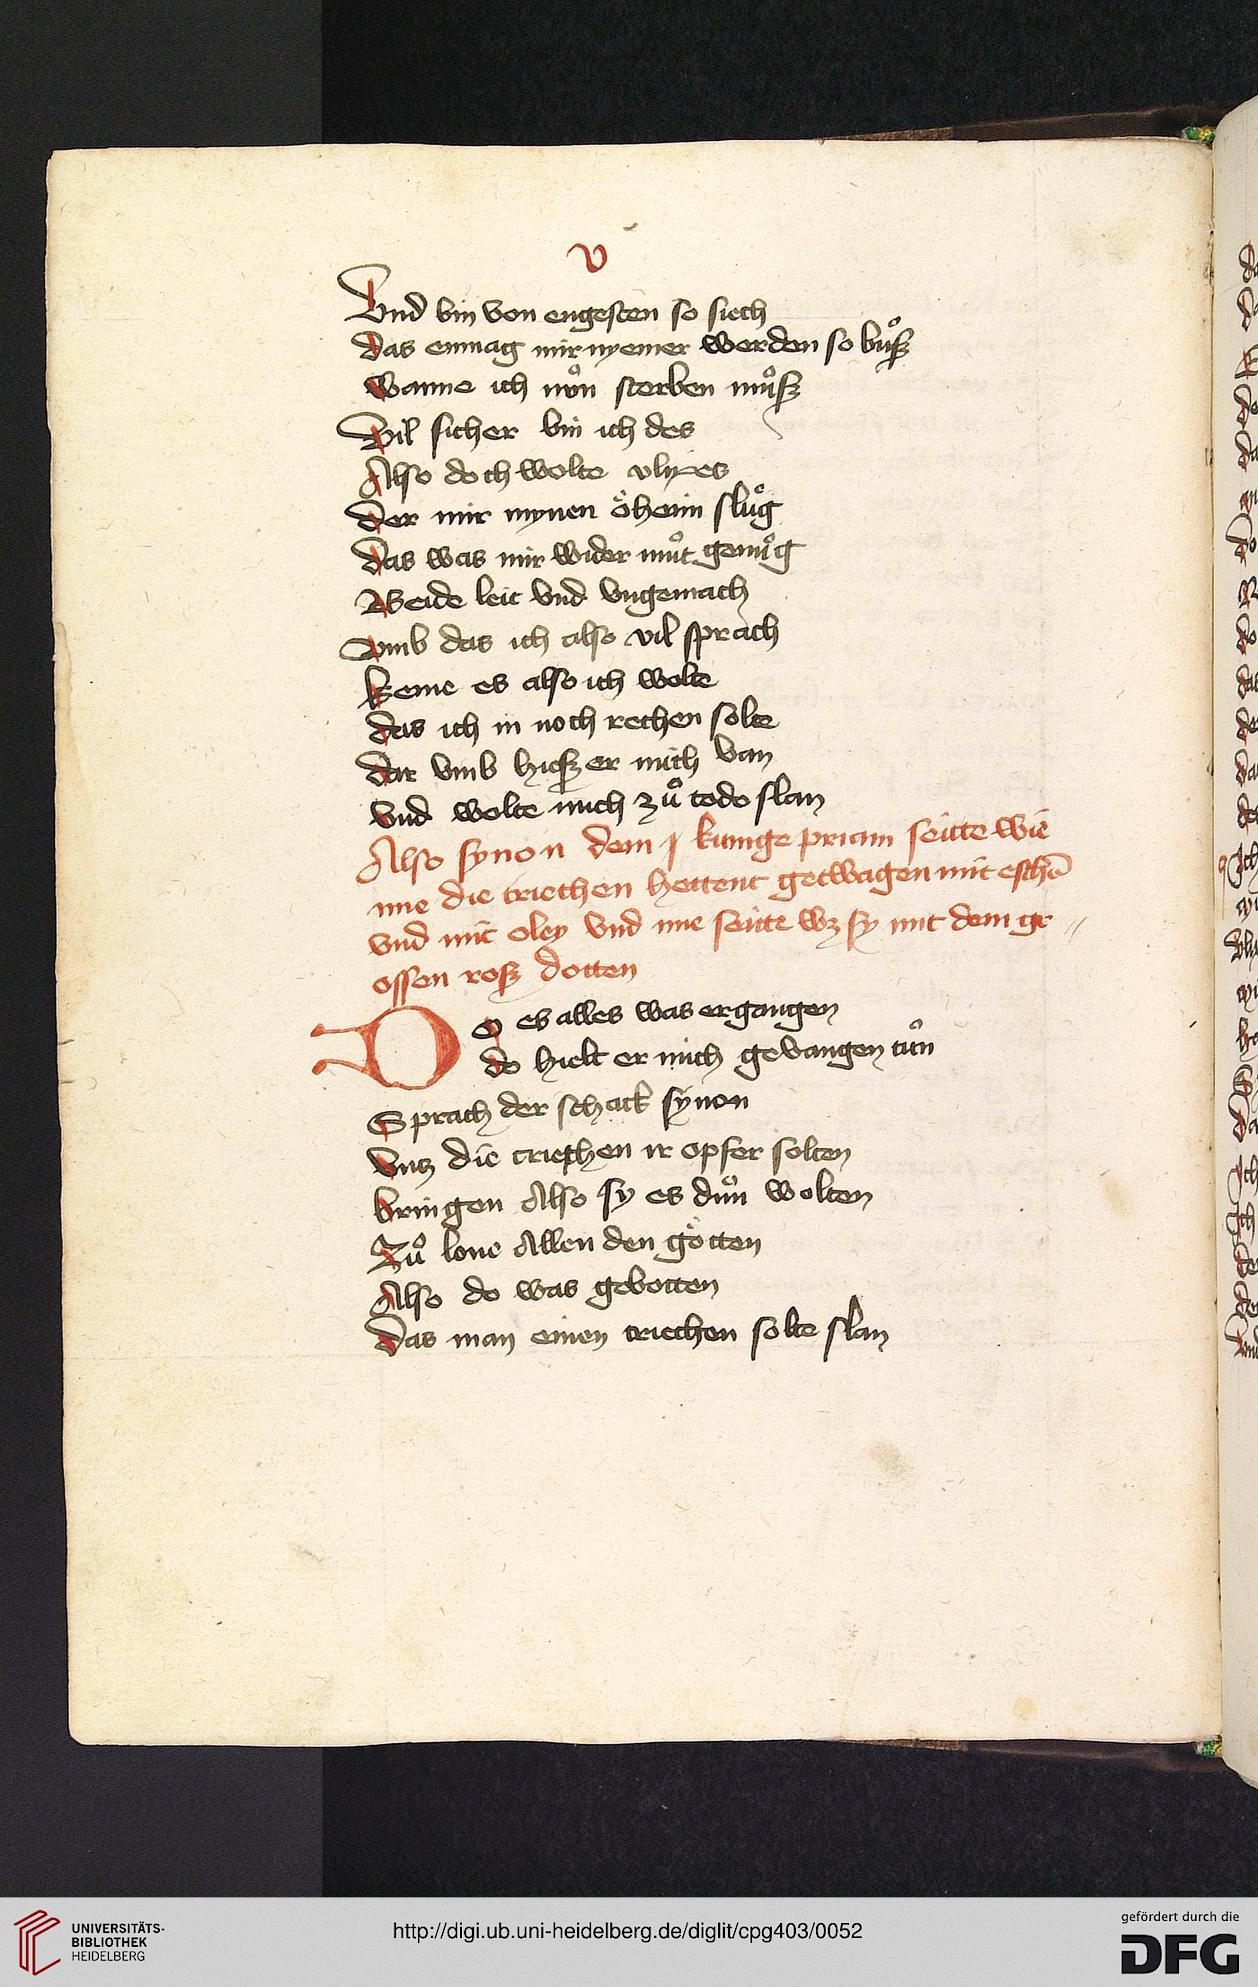 v
Vnd bin von engesten so siech
das enmag mir nyemer werden so buͦsz
wanne ich nuͦn sterben muͦsz
Vil sicher bin ich des
Also doch wolte vlixes
der mir mynen öhenin sluͦg
das was mir wider muͦt genuͦg
Beide leit vnd vngemach
vmb das ich also vil sprach
keme es also ich wolte
das ich in noch rechen solte
dar vmb hiesz er mich van
vnd wolte mich zuͦ tode slan
Also synon dem kunige priam seitte wie
ine die criechen hettent getwagen mit eschē
vnd mit oley vnd ime seitte wz sy mit dem gr //
ossen rosz dotten
Do es alles was ergangen
do hielt er mich gevangen tuͦn
Sprach der schack synon
vntz die criechen ir opfer solten
bringen Also sy es duͦn wolten
Zuͦ lone Allen den götten
Also do was gebotten
das man einen criechen solte slan
UNIVERSITÄTS-
BIBLIOTHEK
HEIDELBERG
http://digi.ub.uni-heidelberg.de/diglit/cpg403/0052
gefördert durch die
DFG